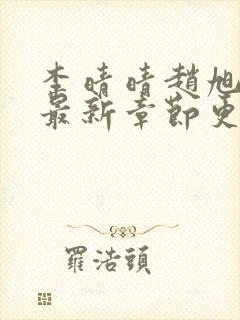 李晴晴趙旭
最新章節更
羅浩頭